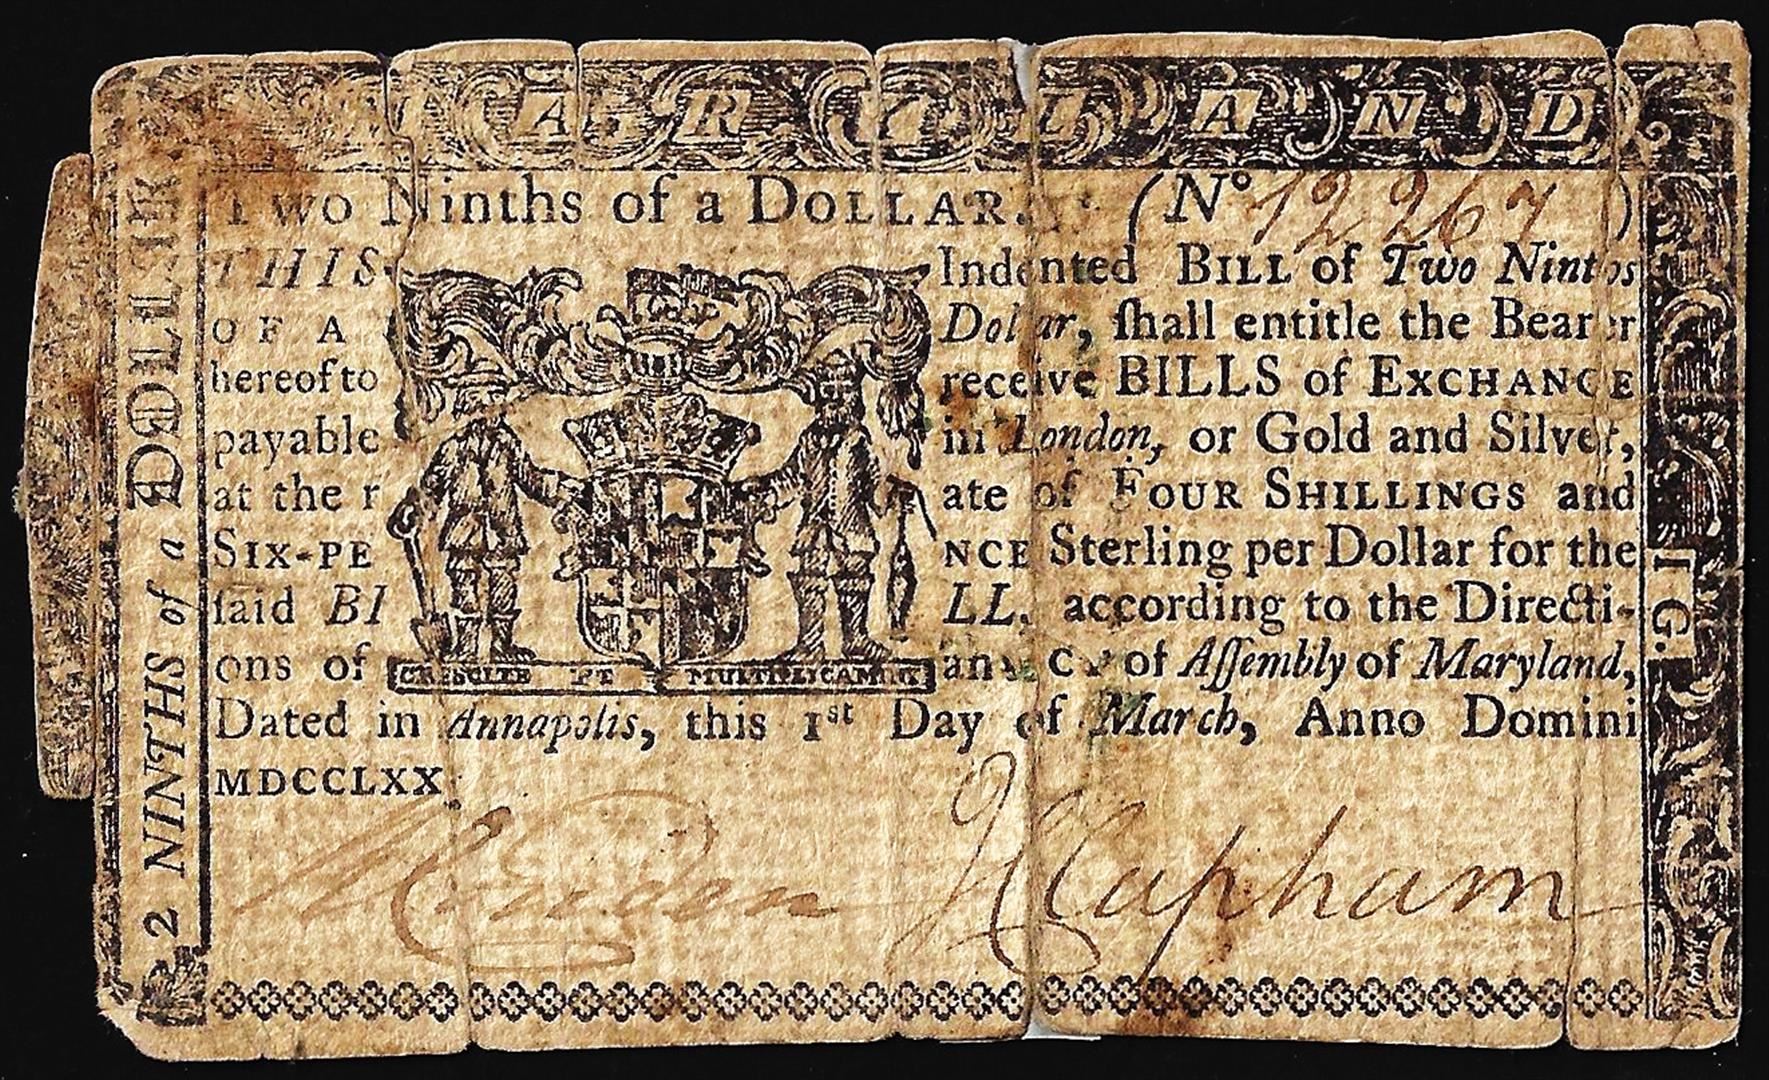 MARYLAND
TWO Ninths of a DOLLAR. (No 12267)
THIS Indented BILL of Two Ninths
OF A Dollar, ſhall entitle the Bearer
hereof to receive BILLS of EXCHANGE
payable in London, or Gold and Silver,
at the r ate of FOUR SHILLINGS and
SIX-PE NCE Sterling per Dollar for the
ſaid BI LL, according to the Directi-
ons of an of Aſſembly of Maryland,
Dated in Annapolis, this 1st Day of March, Anno Domini
MDCCLXX.
CRESCITE ET MULTIPLICAMINI
J Clapham
2 NINTHS of a DOLLAR
I G.